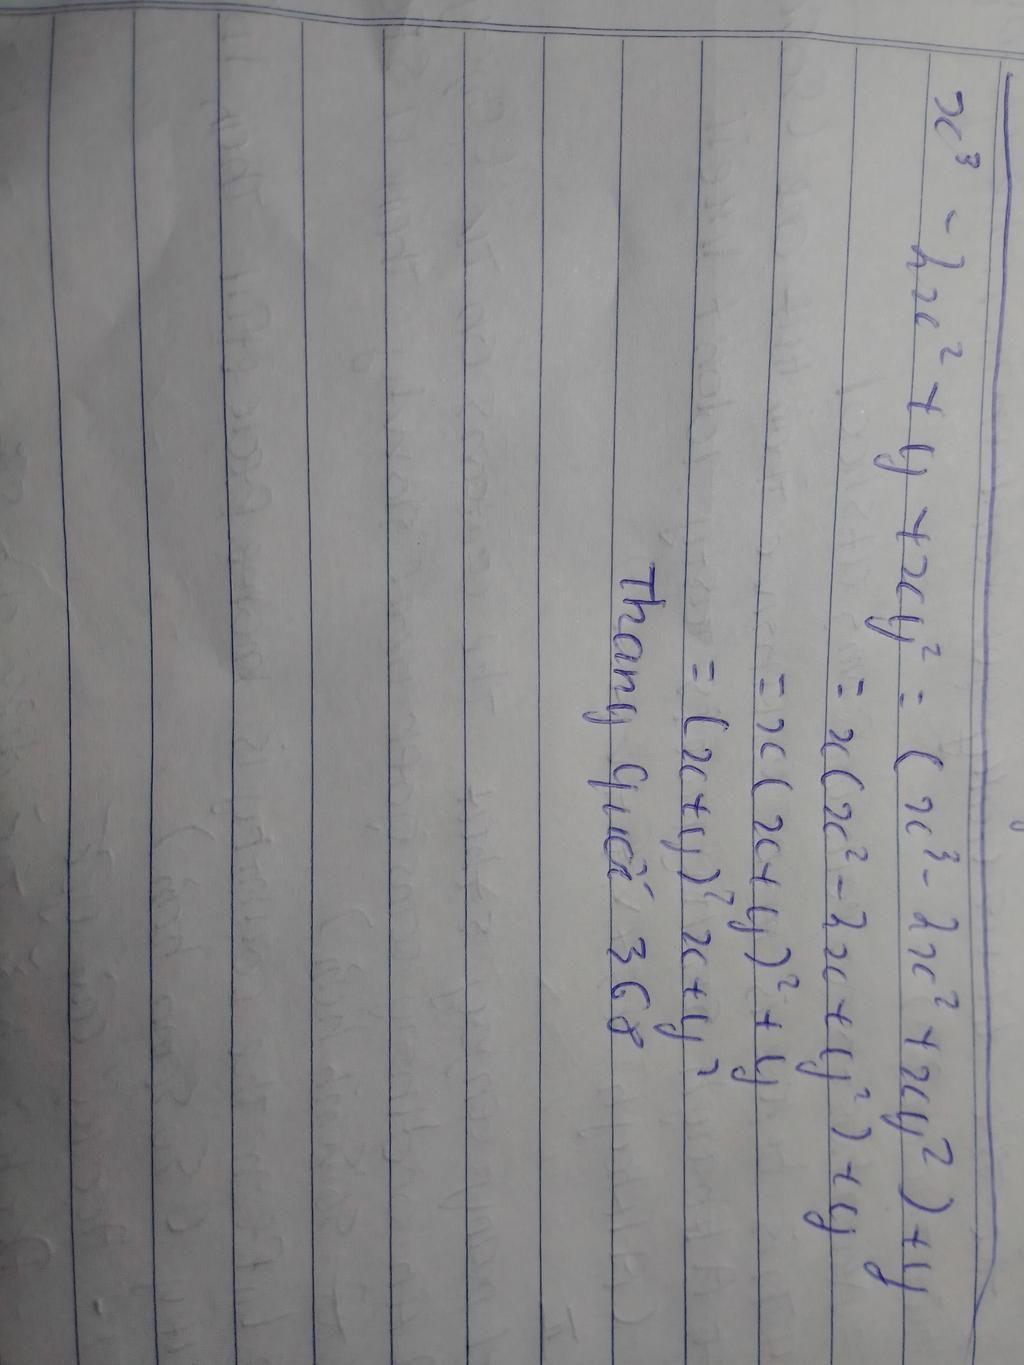 x³ - 2x² + y + xy² = (x³ - 2x² + xy²) + y
= x(x² - 2x + y²) + y
= x(x+y)² + y
= (x+y)² x+y²
Thang Quế 368